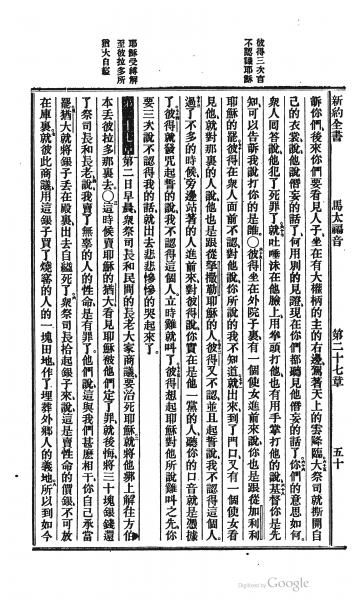 新約全書　馬太福音　第二十七章　五十
彼得三次言
不認識耶穌
耶穌受縛解
至彼拉多所
猶大自縊
訴你們後來你們要看見人子坐在有大權柄的主的右邊駕著天上的雲降臨大祭司就撕開自
己的衣裳說他說僭妄的話了何用別的見證現在你們都聽見他僭妄的話了你們的意思如何
衆人回答說他犯了死罪了就吐唾沫在他臉上用拳頭打他也有用手掌打他的說基督你是先
知可以告訴我說打你的是誰○彼得坐在外院子裏有一個使女進前來說你也是跟從加利利
耶穌的罷彼得在衆人面前不認對他說你所說的我不知道就出來到了門口又有一個使女看
見他就對那裏的人說他也是跟從拏撒勒耶穌的人彼得又不認並且起誓說我不認得這個人
過了不多的時候旁邊站著的人進前來對彼得說你實在是他一黨的人聽你的口音就是憑據
了彼得就發咒起誓的說我不認得這個人立時雞就呌了彼得想起耶穌對他所說雞呌之先你
要三次說不認得我的話就出去悲悲慘慘的哭起來了
第二十七章第二日早晨衆祭司長和民間的長老大家商議要治死耶穌就將他綁上解往方伯
本丟彼拉多那裏去○這時候賣耶穌的猶大看見耶穌被他們定了罪就後悔將三十塊銀錢還
了祭司長和長老說我賣了無辜的人的性命是有罪了他們說這與我們甚麽相干你自己承當
罷猶大就將銀子丟在殿裏出去自縊死了衆祭司長拾起銀子來說這是賣性命的價銀不可放
在庫裏就彼此商議用這銀子買了燒窰的人的一塊田地作了埋葬外鄉人的義地所以到如今
Digitized by Google